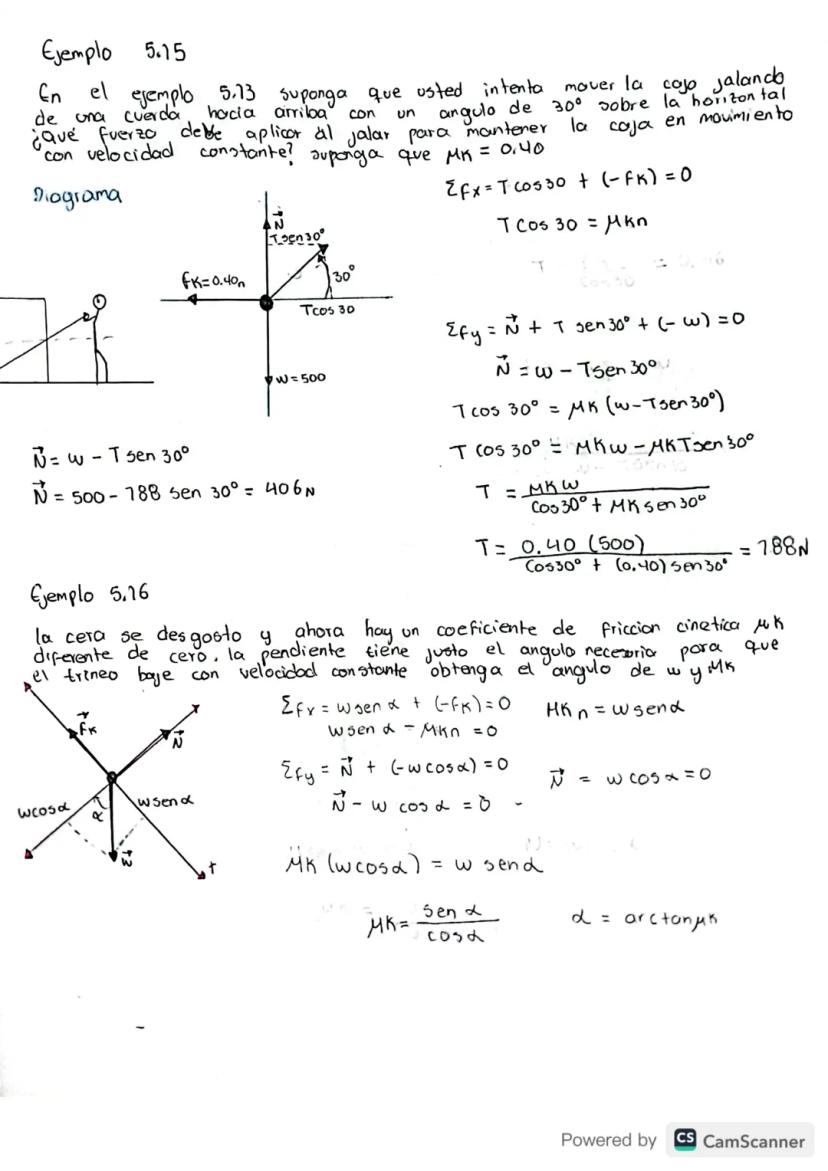 Ejemplo 5.15
En el ejemplo 5.13 suponga que usted intenta mover la caja jalando
de una cuerda hacia arriba con un angulo de 30° sobre la horizontal
¿qué fuerza debe aplicar al jalar para mantener la caja en movimiento
con velocidad constante? suponga que μk = 0.40
Diagrama
N⃗
T sen 30°
fk=0.40n
30°
T cos 30
w=500
Σfx = T cos 30 + (-fk) = 0
T cos 30 = μkn
Σfy = N⃗ + T sen 30° + (-w) = 0
N⃗ = w - T sen 30°
T cos 30° = μk (w - T sen 30°)
T cos 30° = μkw - μkT sen 30°
T = μkw / cos 30° + μk sen 30°
T = 0.40 (500) / cos 30° + (0.40) sen 30° = 188N
N⃗ = w - T sen 30°
N⃗ = 500 - 188 sen 30° = 406N
Ejemplo 5.16
la cera se desgosto y ahora hay un coeficiente de friccion cinetica μk
diferente de cero, la pendiente tiene justo el angulo necesario para que
el trineo baje con velocidad constante obtenga el angulo de w y μk
f⃗k
N⃗
w cos α
α
w sen α
w⃗
+
Σfx = w sen α + (-fk) = 0
w sen α - μkn = 0
μkn = w sen α
Σfy = N⃗ + (-w cos α) = 0
N⃗ - w cos α = 0
N⃗ = w cos α = 0
μk (w cos α) = w sen α
μk = sen α / cos α
α = arctan μk
Powered by CS CamScanner